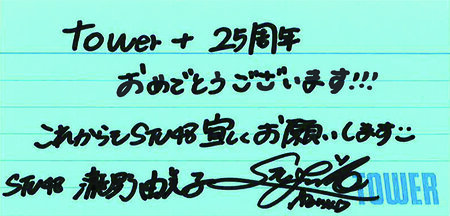 tower+ 25周年
おめでとうございます!!!
これからもSTU48宜しくお願いします
STU48 瀧野由美子
TOWER